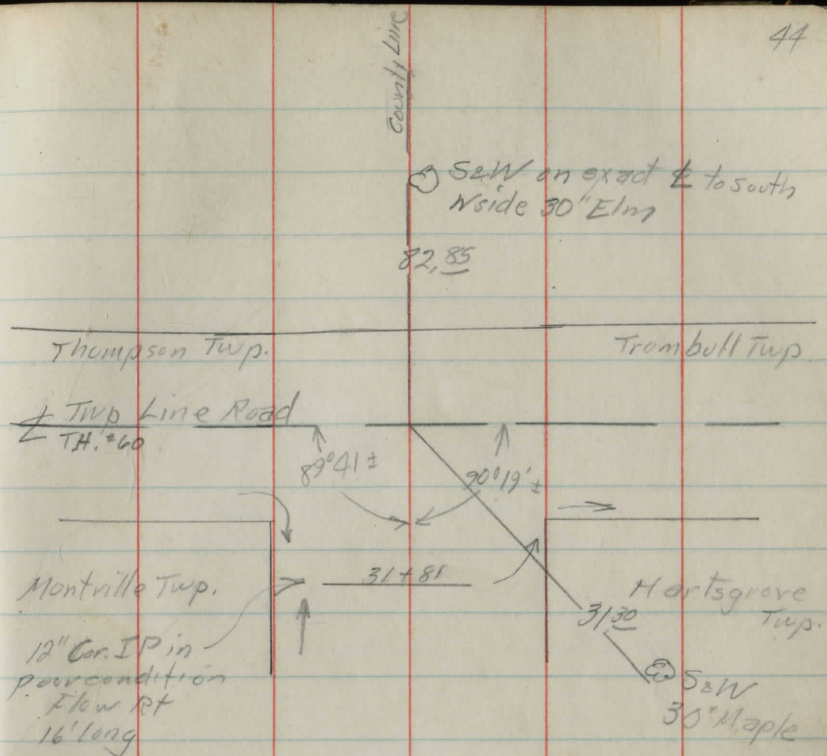 44
County Line
S&W on exact ℄ to south
Nside 30" Elm
82.85
Thompson Twp.
Trumbull Twp
℄ Twp Line Road
T.H. #60
89°41'±
90°19'±
31+81
Montville Twp.
Hartsgrove
Twp.
31.30
12" Cor. IP in
poor condition
Flow Rt
16' long
S&W
30" Maple